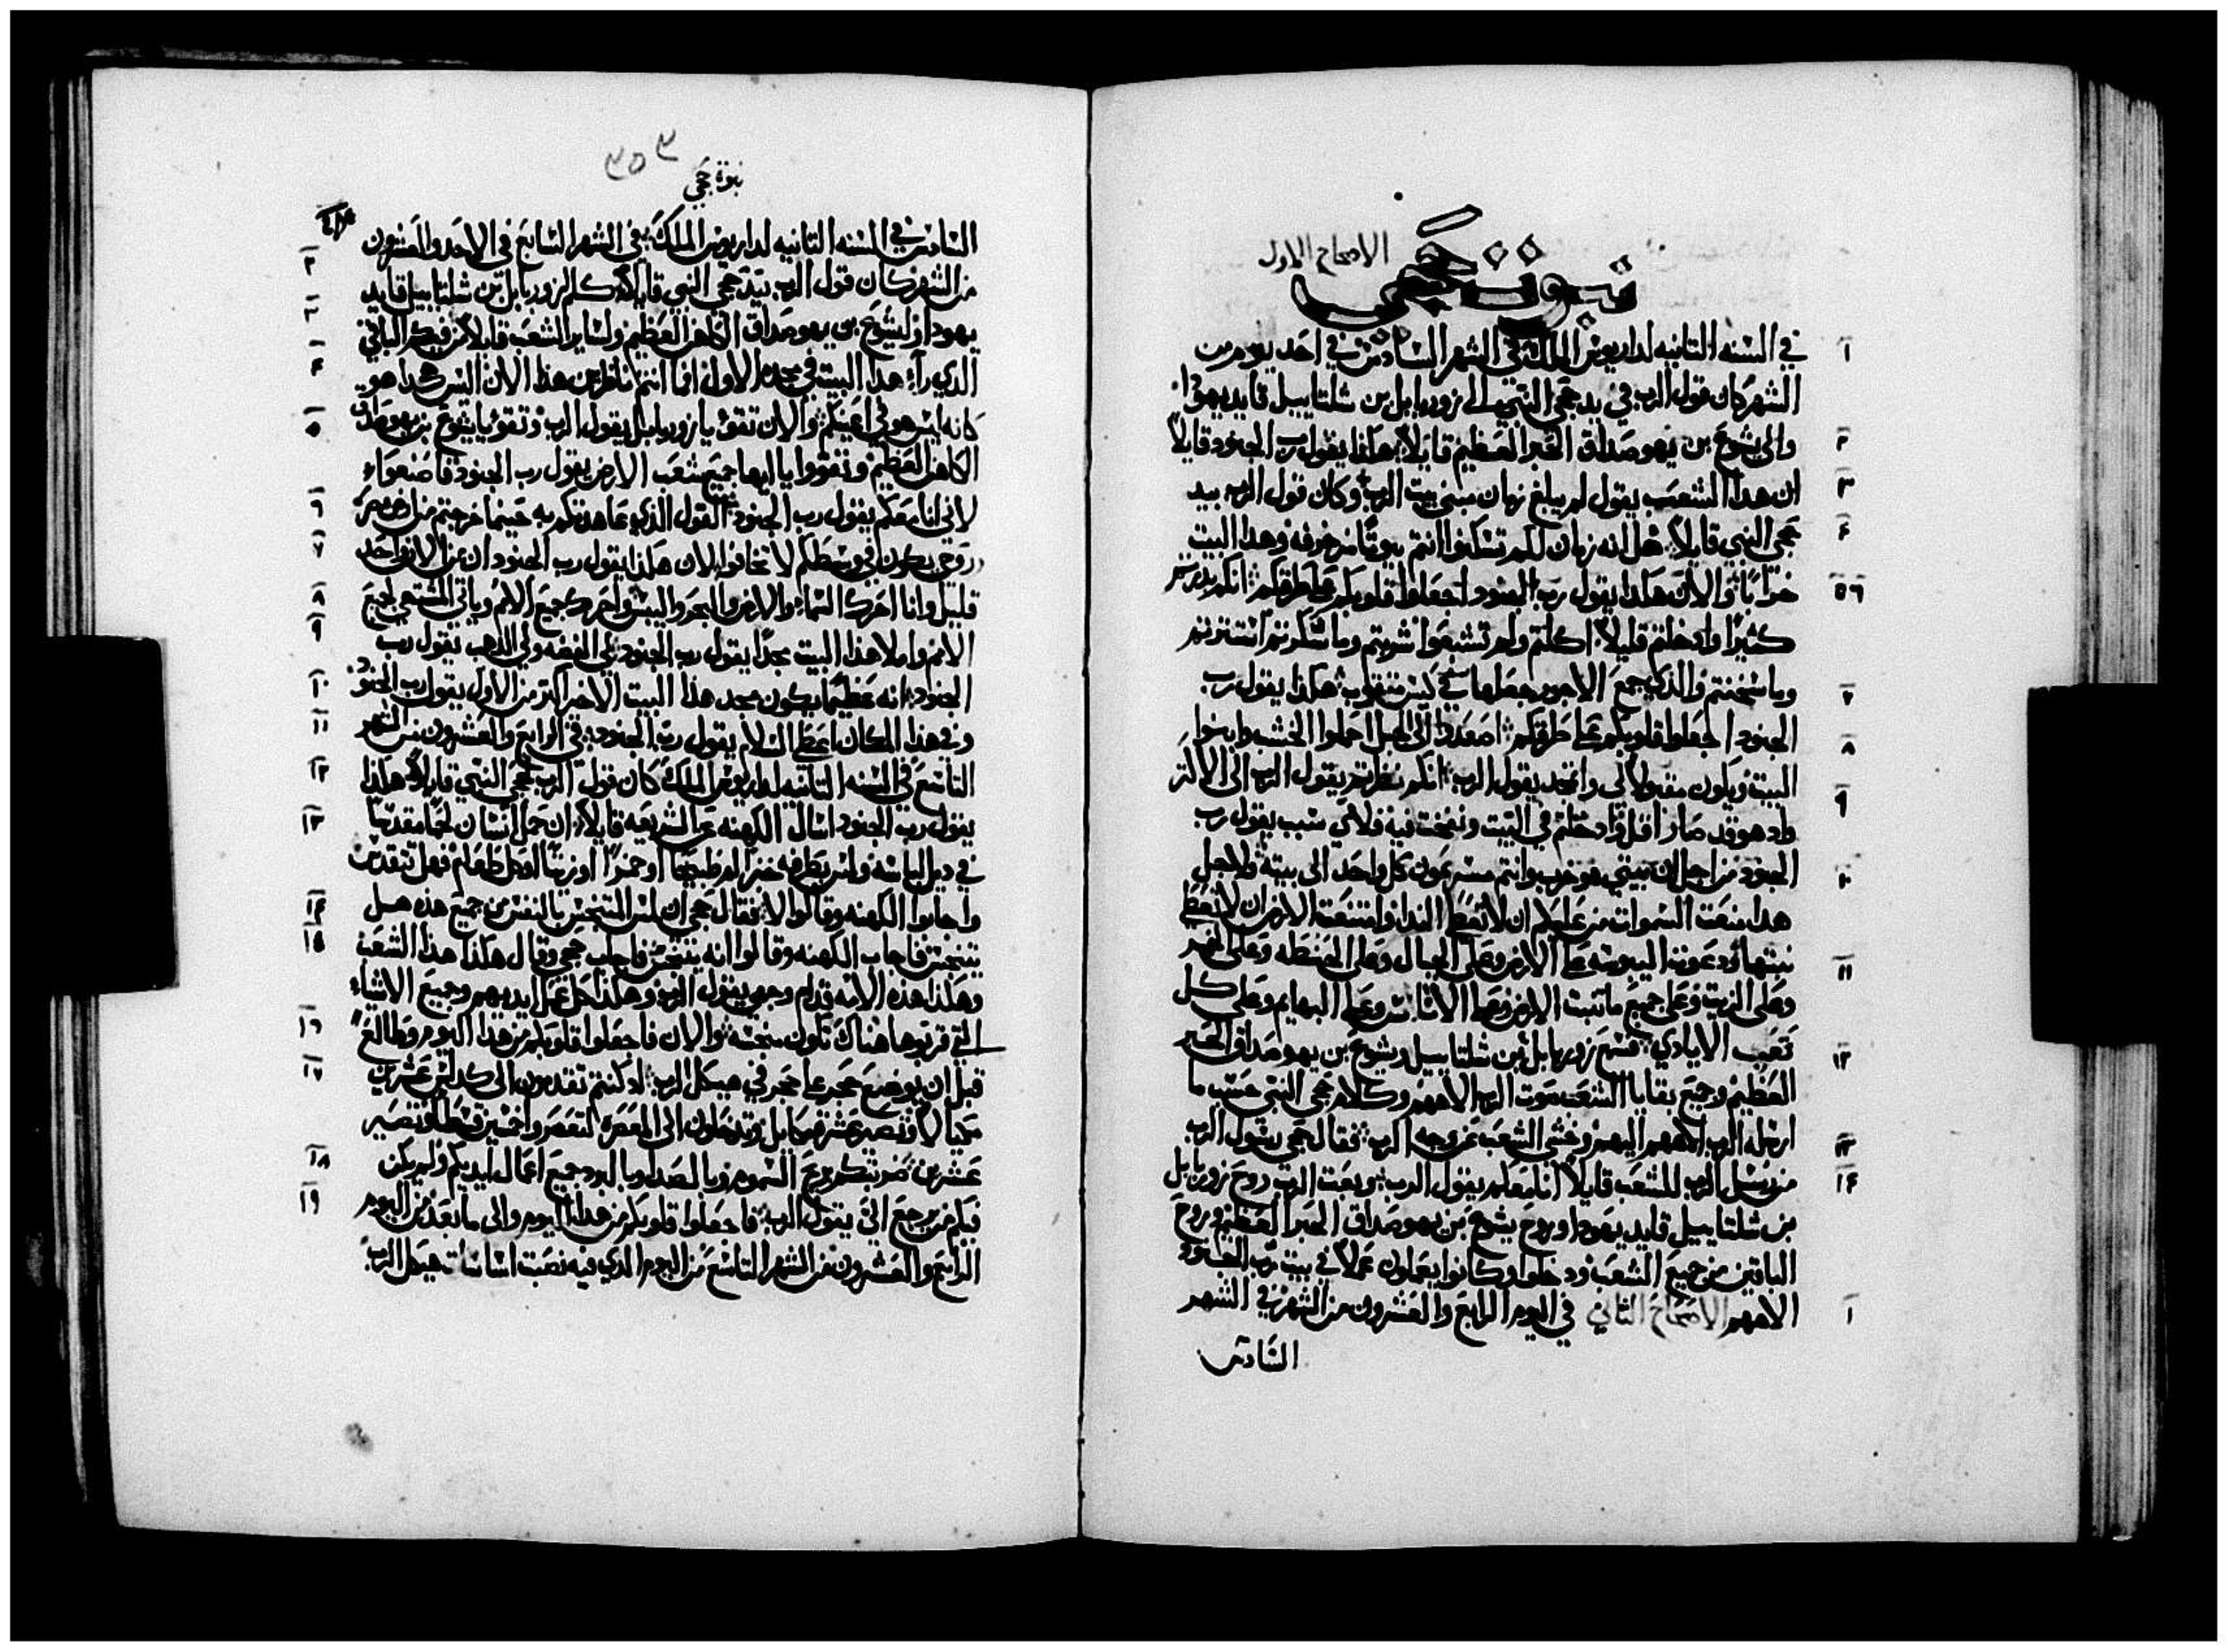 نبوة حجي
الاصحاح الاول
١ في السنه الثانيه لداريوش الملك في الشهر السادس في احد يوم من
الشهر كان قول الرب في يد حجي النبي الى زوربابل بن شلتاييل قايد يهودا
٢ والى يشوع بن يهوصداق الحبر العظيم قايلاً هكذا يقول رب الجنود قايلاً
٣ ان هذا الشعب يقول لم يبلغ زمان مبنى بيت الرب وكان قول الرب بيد
٤ حجي النبي قايلاً هل انه زمان لكم تسكنوا انتم بيوتًا مزخرفه وهذا البيت
٥ ٦ خرابًا والان هكذا يقول رب الجنود اجعلوا قلوبكم على طرقكم انكم بذرتم
كثيرًا وادخلتم قليلاً اكلتم ولم تشبعوا شربتم وما سكرتم استترتم
٧ وما سخنتم والذي جمع الاجور جعلها في كيس مثقوب هكذا يقول رب
٨ الجنود اجعلوا قلوبكم على طرقكم اصعدوا الى الجبل احملوا الخشب وابنوا
٩ البيت ويكون مقبولاً لي واتمجد يقول الرب انكم نظرتم يقول الرب الى الاكثر
واد هو قد صار اقل وادخلتم في البيت ونفخت فيه فلاي سبب يقول رب
١٠ الجنود من اجل ان بيتي هو خرب وانتم مسرعون كل واحد الى بيته ولاجل
هدا منعت السموات من عليكم ان لا تعطي الندا وامتنعت الارض ان لا تعطي
١١ نبتها ودعوت اليبوسه على الارض وعلى الجبال وعلى الحنطه وعلى الخمر
وعلى الزيت وعلى جميع ما تنبت الارض وعلى الاناس وعلى البهايم وعلى كل
١٢ تعب الايادي فسمع زوربابل بن شلتاييل ويشوع بن يهوصداق الحبر
العظيم وجميع بقايا الشعب صوت الرب الاههم وكلام حجي النبي حسب ما
١٣ ارسله الرب الاههم اليهم وخشي الشعب من وجه الرب فقال حجي رسول الرب
١٤ من رسل الرب للشعب قايلاً انا معكم يقول الرب وبعث الرب روح زوربابل
بن شلتاييل قايد يهودا وروح يشوع بن يهوصداق الحبر العظيم وروح
الباقين من جميع الشعب ودخلوا وكانوا يعملون عملاً في بيت رب الجنود
١ الاههم الاصحاح الثاني في اليوم الرابع والعشرون من الشهر في الشهر
السادس
٣٥٣
نبوة حجي
السادس في السنه الثانيه لداريوش الملك في الشهر السابع في الاحد والعشرون
٢ من الشهر كان قول الرب بيد حجي النبي قايلاً كلم لزوربابل بن شلتاييل قايد
٣ يهودا وليشوع بن يهوصداق الكاهن العظيم ولساير الشعب قايلاً من فيكم الباقي
٤ الذي راء هدا البيت في مجده الاول اما انتم ناظرين هذا الان اليس هكدا هو
٥ كانه ليس هو في اعينكم والان تقو يا زوربابل يقول الرب وتقو يا يشوع بن يهوصداق
الكاهن العظيم وتقووا يا ايها جميع شعب الارض يقول رب الجنود فاصنعواء
٦ لاني انا معكم يقول رب الجنود القول الذي عاهدتكم به حينما خرجتم من ارض مصر
٧ وروحي يكون في وسطكم لا تخافوا لان هكذا يقول رب الجنود ان عن الان واحد
٨ قليل وانا احرك السماء والارض والبحر واليبس واحرك جميع الامم وياتي المشتهي لجميع
٩ الامم واملا هذا البيت مجدًا يقول رب الجنود لي الفضه ولي الذهب يقول رب
١٠ الجنود انه عظيمًا يكون مجد هذا البيت الاخر اكتر من الاول يقول رب الجنود
١١ وفي هذا المكان اعطي السلام يقول رب الجنود في الرابع والعشرون من الشهر
١٢ التاسع في السنه الثانيه لداريوش الملك كان قول الرب لحجي النبي قايلاً هكذا
١٣ يقول رب الجنود اسال الكهنه عن الشريعه قايلاً ان حمل انسان لحمًا مقدسًا
في ديل لباسه ولمس بطرفه خبزًا او طبيخًا او خمرًا او زيتًا او كل طعام فهل تتقدس
١٤ واجابوا الكهنه وقالوا لا فقال حجي ان لمس المتنجس بالنفس من جميع هذه هل
١٥ يتنجس فاجاب الكهنه وقالوا انه يتنجس فاجاب حجي وقال هكذا هذا الشعب
وهكذا هذه الامه قدام وجهي يقول الرب وهكذا كل عمل ايديهم وجميع الاشياء
١٦ التي قربوها هناك تكون منجسه والان فاجعلوا قلوبكم من هذا اليوم وطالعًا
١٧ قبل ان يوضع حجر على حجر في هيكل الرب اد كنتم تقدمون الى كدس عشرين
مكيالاً وتصير عشرة مكاييل وتدخلون الى المعصره لتعصروا خمسين قسطًا وتصير
١٨ عشرين ضربتكم بريح السموم وبالصدا وبالبرد جميع اعمال ايديكم ولم يكن
١٩ فيكم من يرجع اليّ يقول الرب فاجعلوا قلوبكم من هدا اليوم والى ما بعد من اليوم
الرابع والعشرون من الشهر التاسع من اليوم الذي فيه نصبت اساسات هيكل الرب